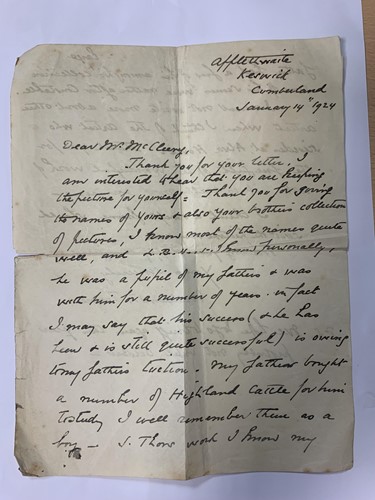 Applethwaite
Keswick
Cumberland
January 14th 1924
Dear Mr McCleary,
Thank you for your letter. I
am interested to hear that you are keeping
the picture for yourself = Thank you for giving
the names of yours & also your brothers collection
of pictures, I know most of the names quite
well, and I know personally,
he was a pupil of my fathers & was
with him for a number of years. in fact
I may say that his success (& he has
been & is still quite successful) is owing
to my fathers tuction. My father bought
a number of Highland Cattle for him
to study I well remember them as a
boy — S. Thors work I know my